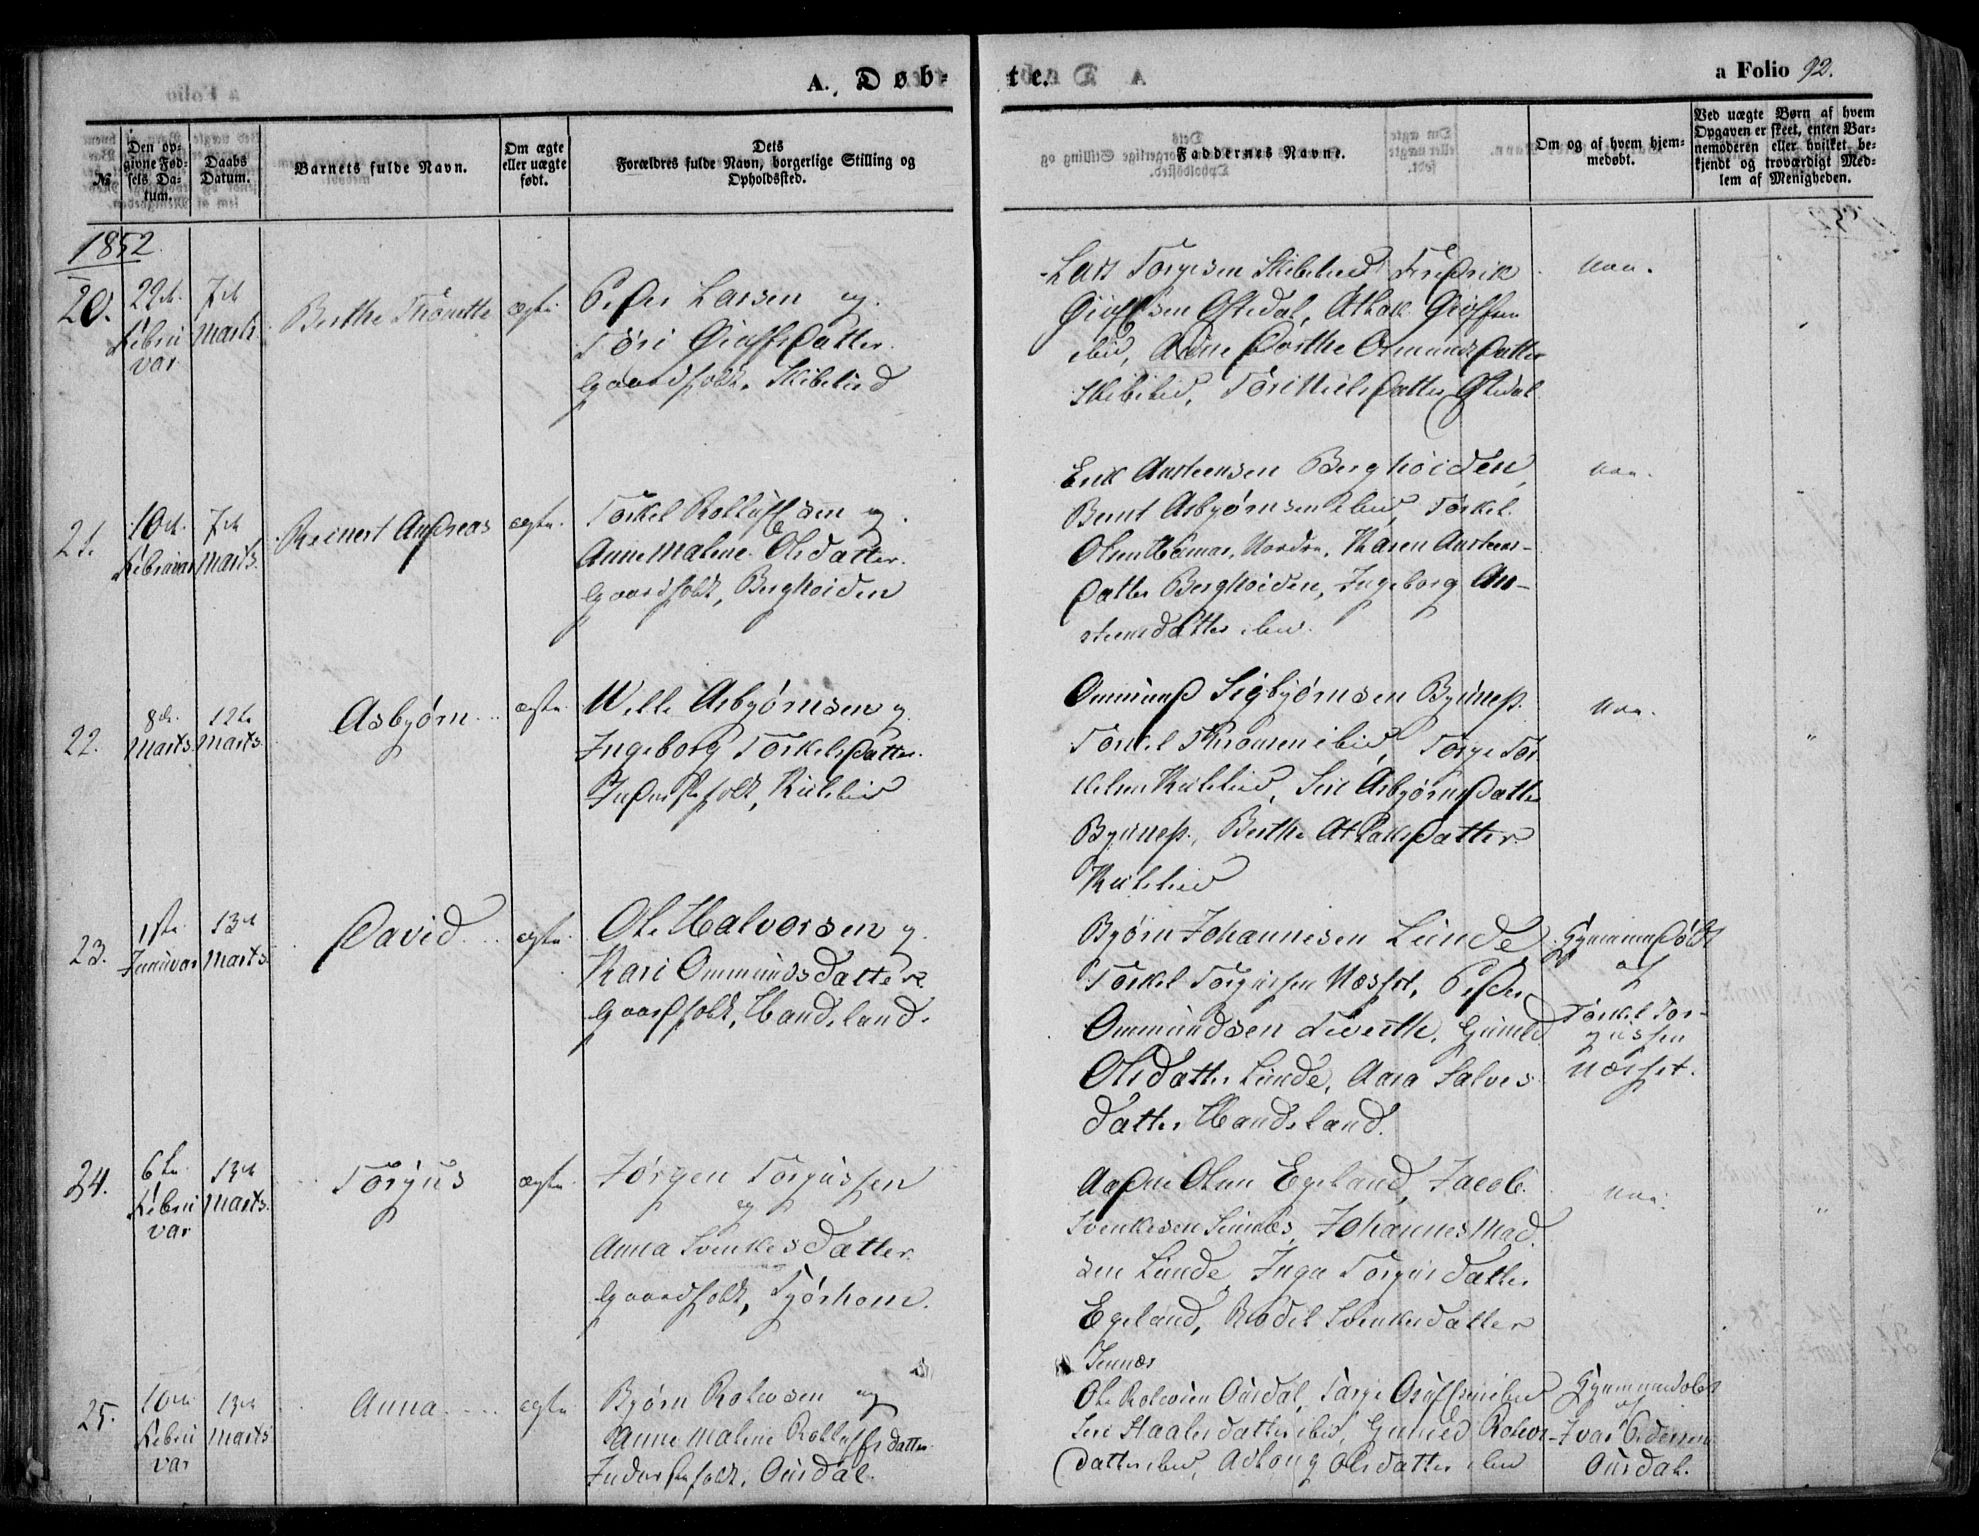 A. Døb-
te.
a Folio 92.
№
Den op-
givne Fød-
sels Da-
tum.
Daabs
Datum.
Barnets fulde Navn.
Om ægte
eller uægte
født.
Dets
Forældres fulde Navn, borgerlige Stilling og
Opholdssted.
Faddernes Navne.
Om og af hvem hjem-
medøbt.
Ved uægte Børn af hvem
Opgaven er skeet, enten Bar-
nemoderen eller hvilket be-
kjendt og troværdigt Med-
lem af Menigheden.
1852
20.
Februar
7de
Marts
Berthe Thonette
ægte
Peder Larsen og
Tøri Gjulfsdatter
Gaardfolk, Skibelied
Lars Torgesen Skibelied Fredrik
Osthedal, Athak
ibid, Anne Dorthe Omundsdatter
Skibelied, Tøri Nielsdatter
21.
10de
Februar
7de
Marts.
Reinert Andreas
ægte
Torkel Rolluffsen og
Anne Malene Olsdatter
Gaardfolk, Berghoiden
Erik Austeensen Berghoiden,
Bernt Asbjørnsen ibid, Torkel
Olsen Hamar, Nordre, Karen Austeens-
datter Berghoiden, Ingeborg Au-
steensdatter ibid.
22.
8de
Marts
12te
Marts
Asbjørn
ægte
Welle Asbjørnsen og
Ingeborg Torkelsdatter
Inderstfolk,
Ommund Sigbjørnsen
Torkel ibid, Torge Tor
kelsen Siri Asbjørnsdatter
Berthe datter
23.
1ste
Januar
13de
Marts
David
ægte
Ole Halvorsen og
Kari Ommundsdatter
Gaardfolk, Handeland.
Bjørn Johannesen Lunde
Torkel Torgussen Næsset, Peder
Ommundsen Tveeth, Gunild
Olsdatter Lunde, Aasa Salves
datter Handeland.
Hjemmedøbt
af
Torkel Tor-
gussen
Næsset.
24.
6te
Februar
13de
Marts
Torgus
ægte
Jørgen Torgussen
og
Anna Svenkesdatter
Gaardfolk, Tjørhom.
Aadne Olsen Egeland, Jacob
Svenkesen Sinnæs, Johannes Mad
sen Lunde, Inga Torgusdatter
Egeland, Bodil Svenkesdatter
Sinnæs
25.
10de
Februar
13de
Marts
Anna
ægte
Bjørn Rolevsen og
Anne Malene Rolluffsdatter
Inderstfolk, Ousdal.
Ole Rolevsen Ousdal, ibid
Siri Staalesdatter ibid, Gunild Rolevs-
datter ibid, Aslaug Olsdatter ibid
Hjemmedøbt
af
Ivar
Ousdal.